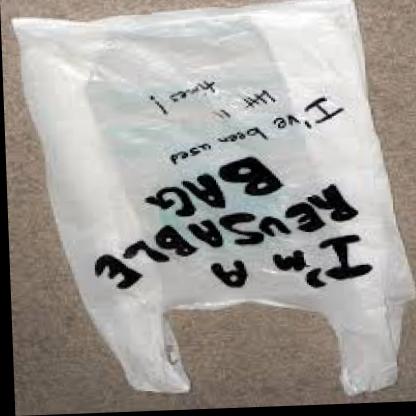 I'M A
REUSABLE
BAG
I've been used
𝍸 II
times!